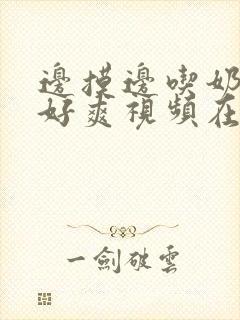 邊摸邊喫奶
好爽視頻在
一劍破雲